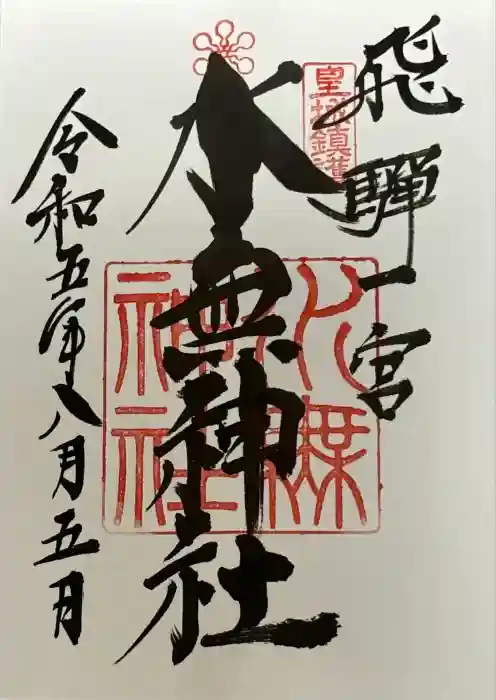 飛騨一宮
皇城鎮護
水無神社
水無神社
令和五年八月五日